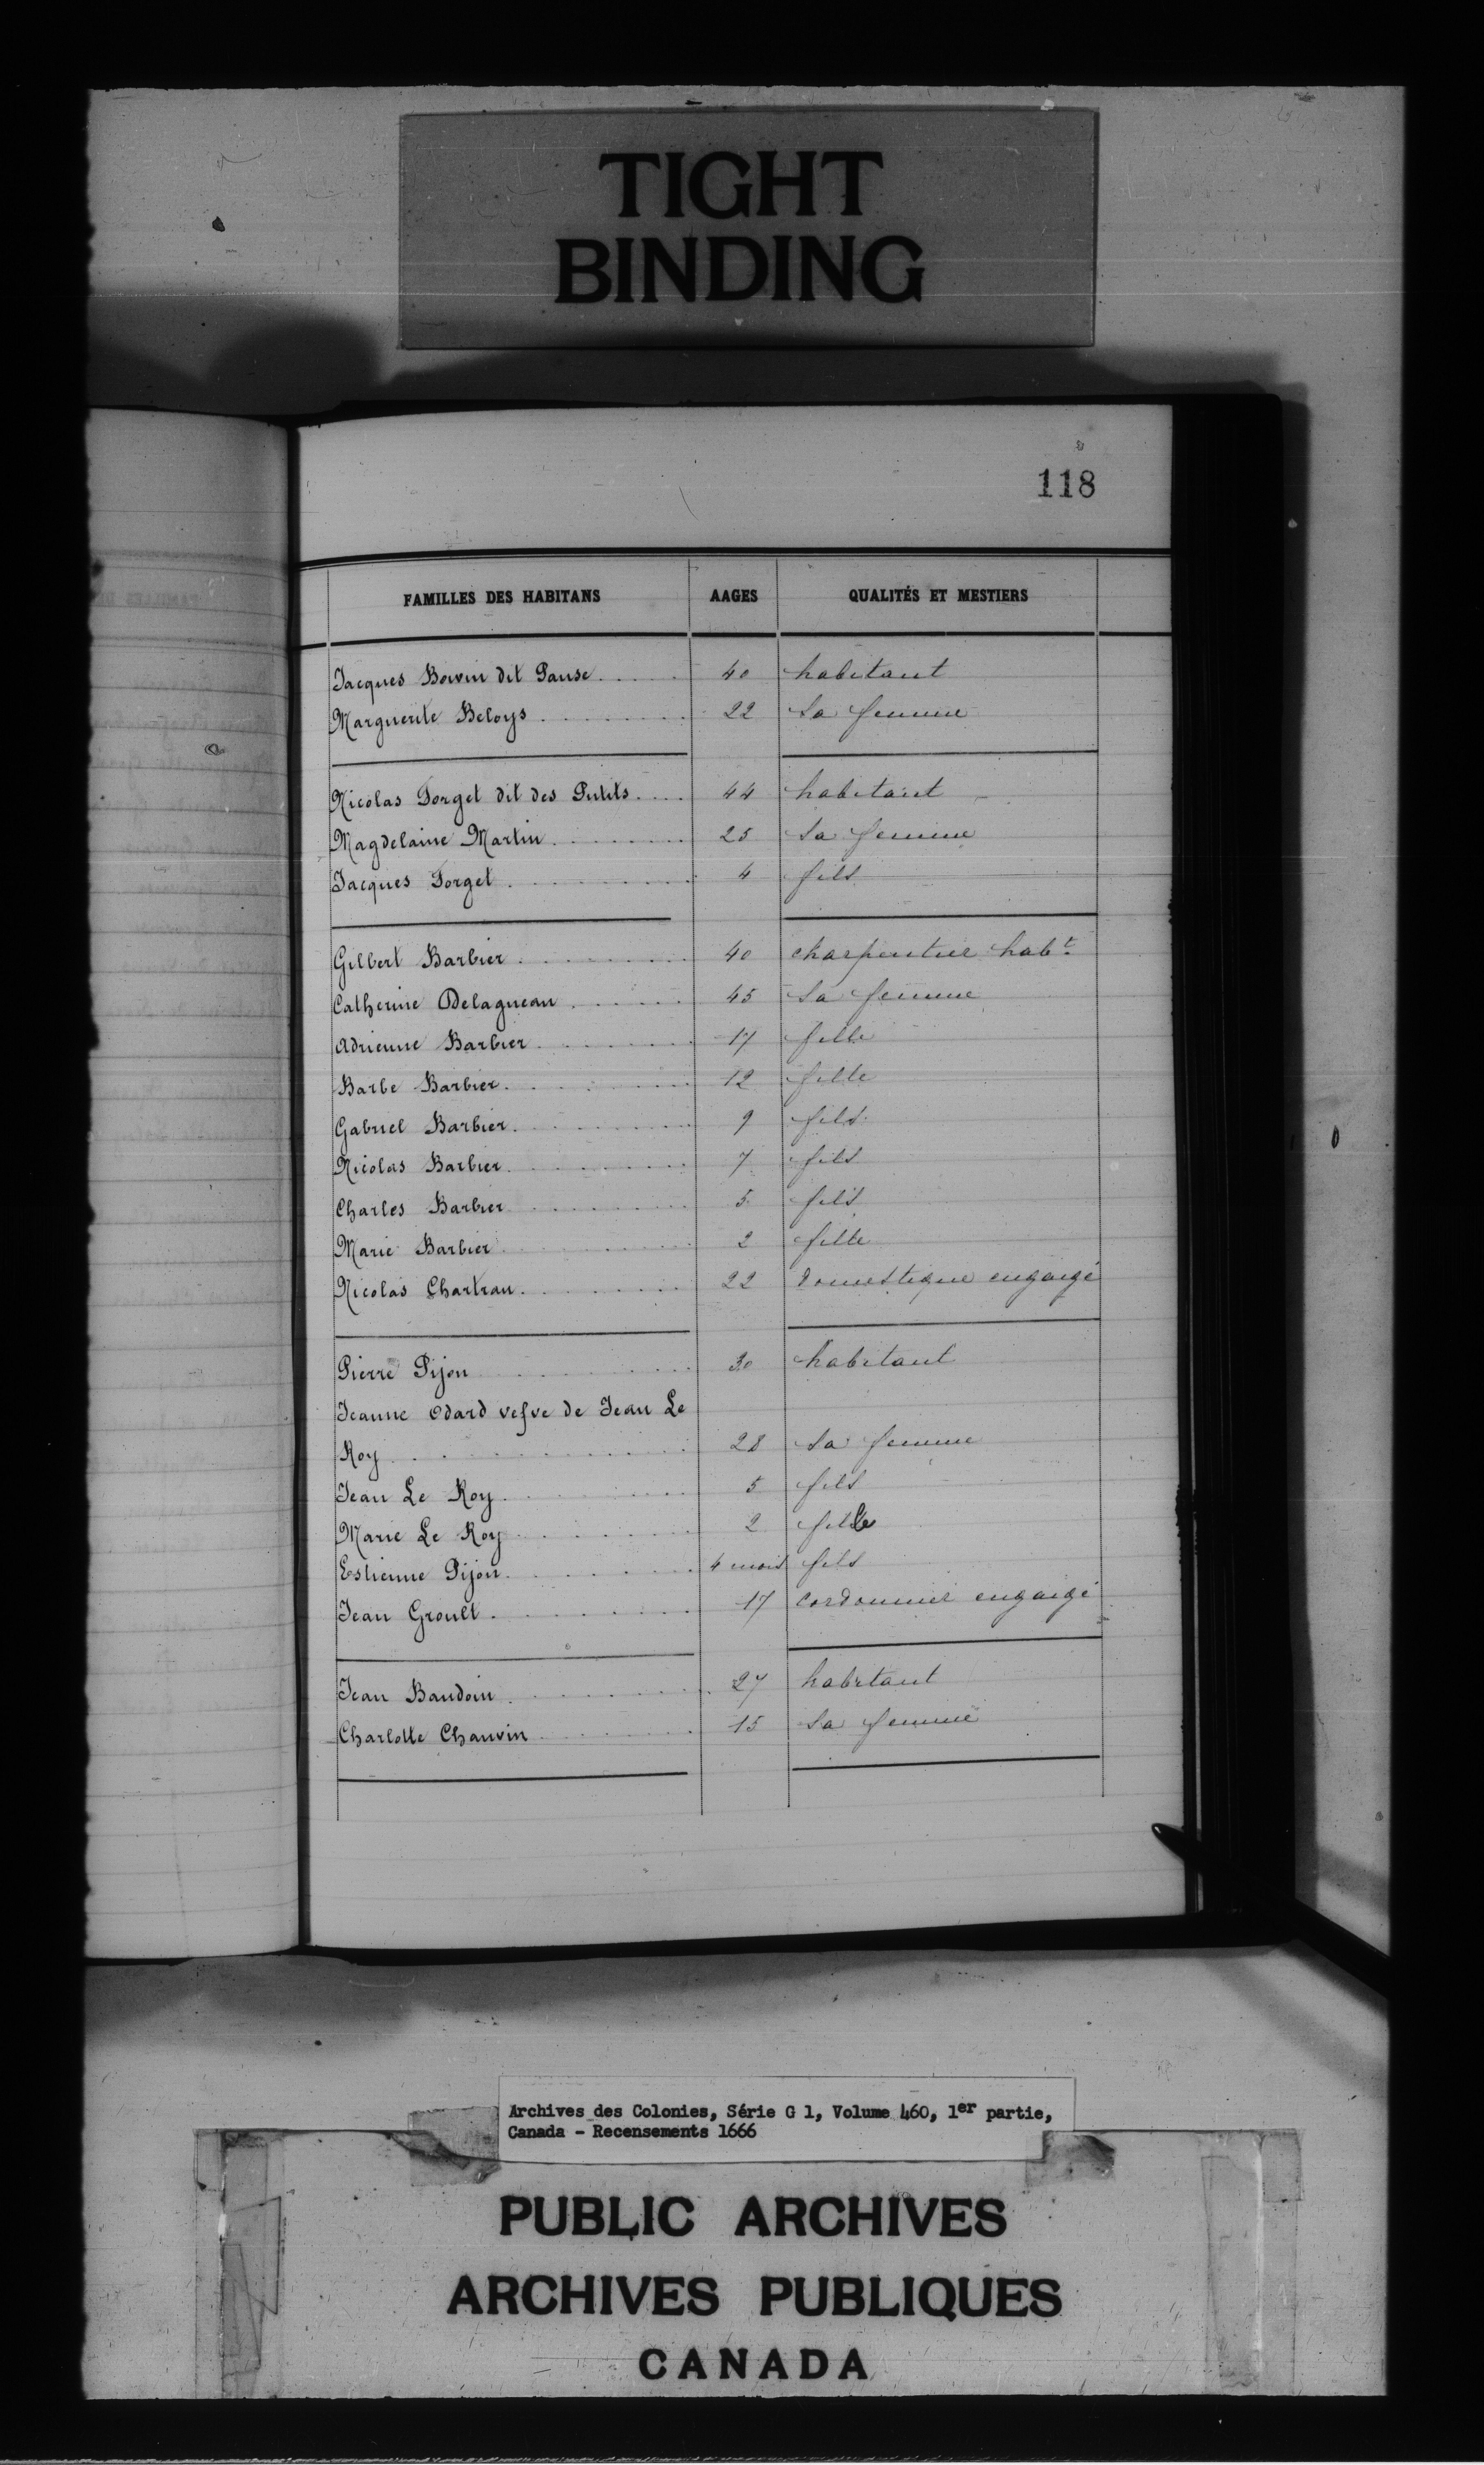 TIGHT
BINDING
118
FAMILLES DES HABITANS AAGES QUALITÉS ET MESTIERS
Jacques Boivin dit Panse 40 habitant
Marguerite Beloys 22 sa femme
Nicolas Forget dit des Putils 44 habitant
Magdelaine Martin 25 sa femme
Jacques Forget 4 fils
Gilbert Barbier 40 charpentier habt
Catherine Delagneau 45 sa femme
Adrienne Barbier 17 fille
Barbe Barbier 12 fille
Gabriel Barbier 9 fils
Nicolas Barbier 7 fils
Charles Barbier 5 fils
Marie Barbier 2 fille
Nicolas Chartran 22 domestique engaigé
Pierre Pijon 30 habitant
Jeanne Odard vefve de Jean Le
Roy 28 sa femme
Jean Le Roy 5 fils
Marie Le Roy 2 fille
Estienne Pijon 4 mois fils
Jean Groult 17 cordonnier engaigé
Jean Baudoin 27 habitant
Charlotte Chauvin 15 sa femme
Archives des Colonies, Série G 1, Volume 460, 1er partie,
Canada - Recensements 1666
PUBLIC ARCHIVES
ARCHIVES PUBLIQUES
CANADA